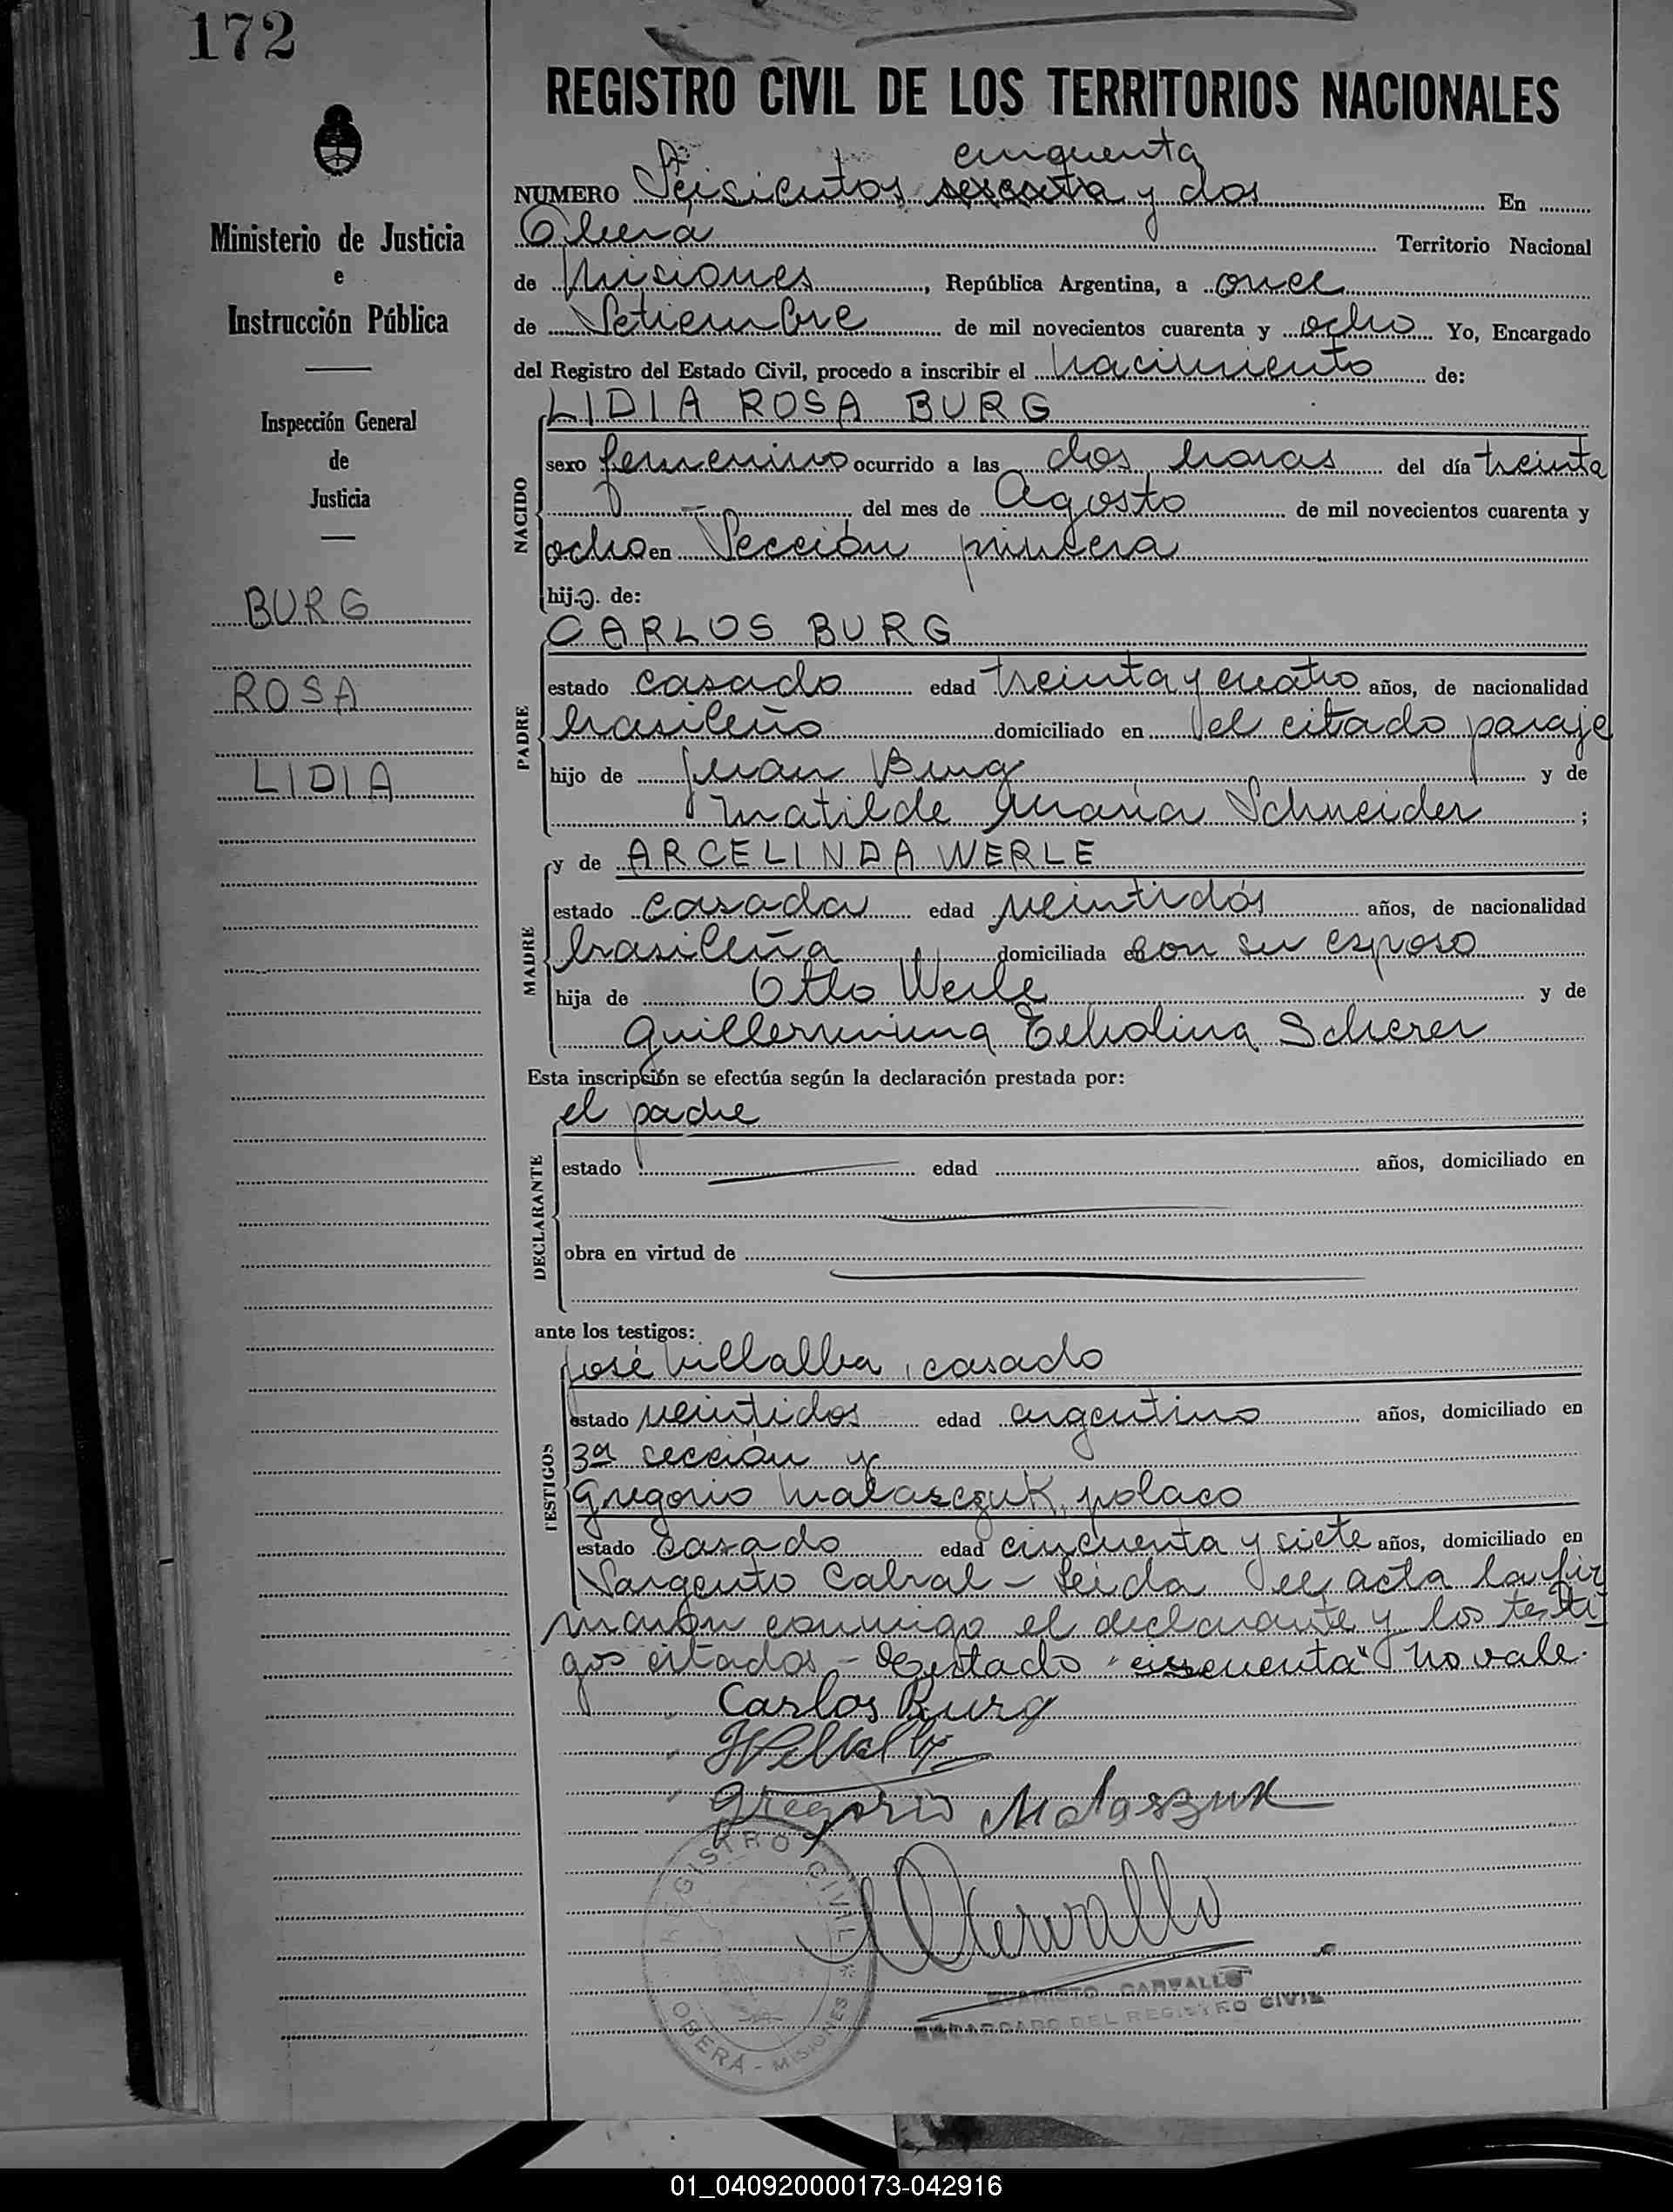 172
Ministerio de Justicia
e
Instrucción Pública
Inspección General
de
Justicia
BURG
ROSA
LIDIA
REGISTRO CIVIL DE LOS TERRITORIOS NACIONALES
cinquenta
NUMERO Seiscientos sesenta y dos En
Oberá Territorio Nacional
de Misiones, República Argentina, a once
de Setiembre de mil novecientos cuarenta y ocho Yo, Encargado
del Registro del Estado Civil, procedo a inscribir el nacimiento de:
LIDIA ROSA BURG
NACIDO
sexo femenino ocurrido a las dos horas del día treinta
del mes de Agosto de mil novecientos cuarenta y
ocho en Sección primera
hija de:
CARLOS BURG
PADRE
estado casado edad treinta y cuatro años, de nacionalidad
brasileño domiciliado en el citado paraje
hijo de Juan Burg y de
Matilde María Schneider ;
y de ARCELINDA WERLE
MADRE
estado casada edad veintidós años, de nacionalidad
brasileña domiciliada con su esposo
hija de Otto Werle y de
Guillermina Scherer
Esta inscripción se efectúa según la declaración prestada por:
el padre
DECLARANTE
estado edad años, domiciliado en
obra en virtud de
ante los testigos:
José Villalba, casado
TESTIGOS
estado veintidos edad argentino años, domiciliado en
3ª sección y
Gregorio Malasczuk, polaco
estado casado edad cincuenta y siete años, domiciliado en
Sargento Cabral - Leida el acta la fir
maron conmigo el declarante y los testi-
gos citados - "cincuenta" no vale.
Carlos Burg
Gregorio
REGISTRO CIVIL * OBERÁ - MISIONES
CARVALLO
ENCARGADO DEL REGISTRO CIVIL
01_040920000173-042916